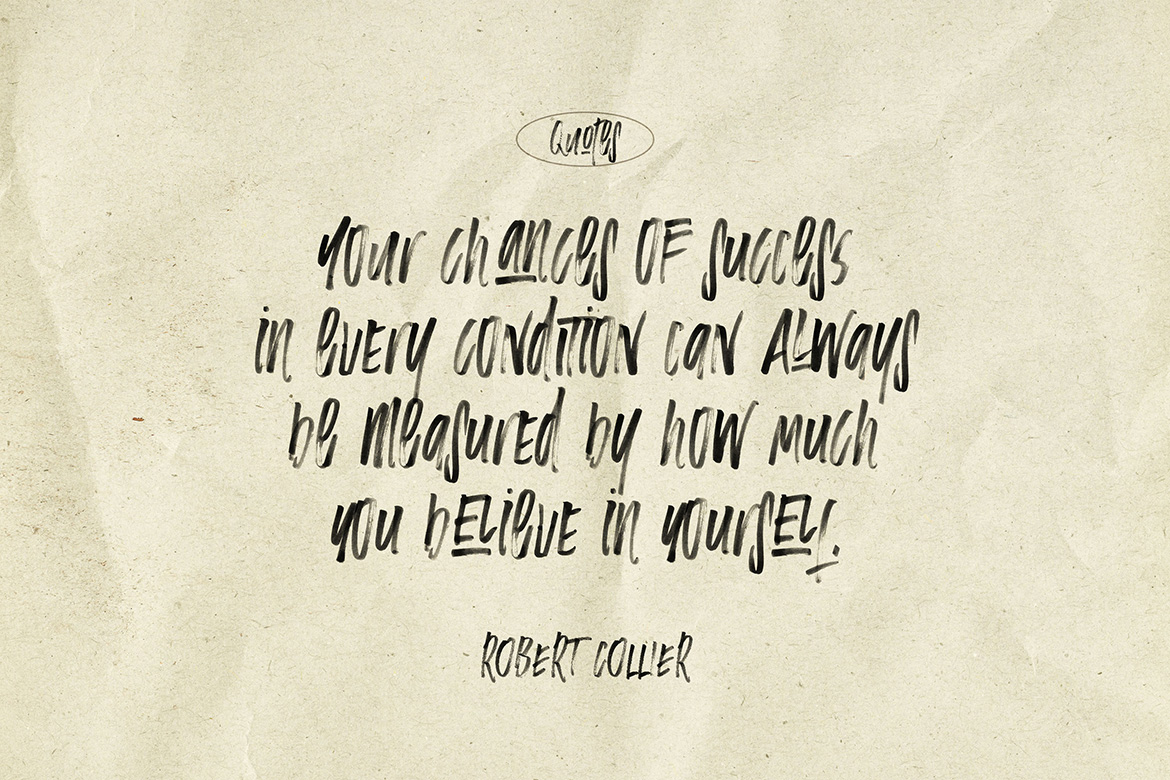 Quotes
Your chances OF success
in every condition can Always
be measured by how much
you believe in yourself.
ROBERT COLLIER